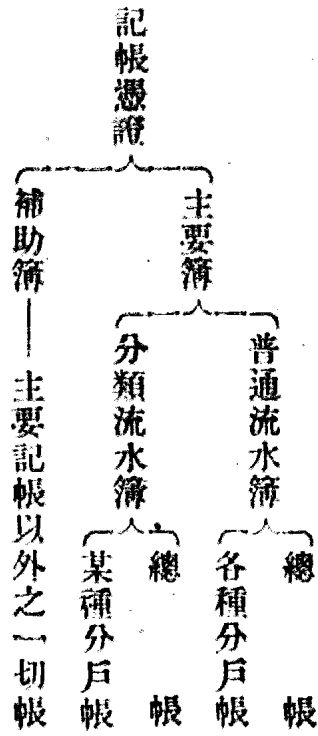 記帳憑證
主要簿
普通流水簿
總帳
各種分戶帳
分類流水簿
總帳
某種分戶帳
補助簿——主要記帳以外之一切帳